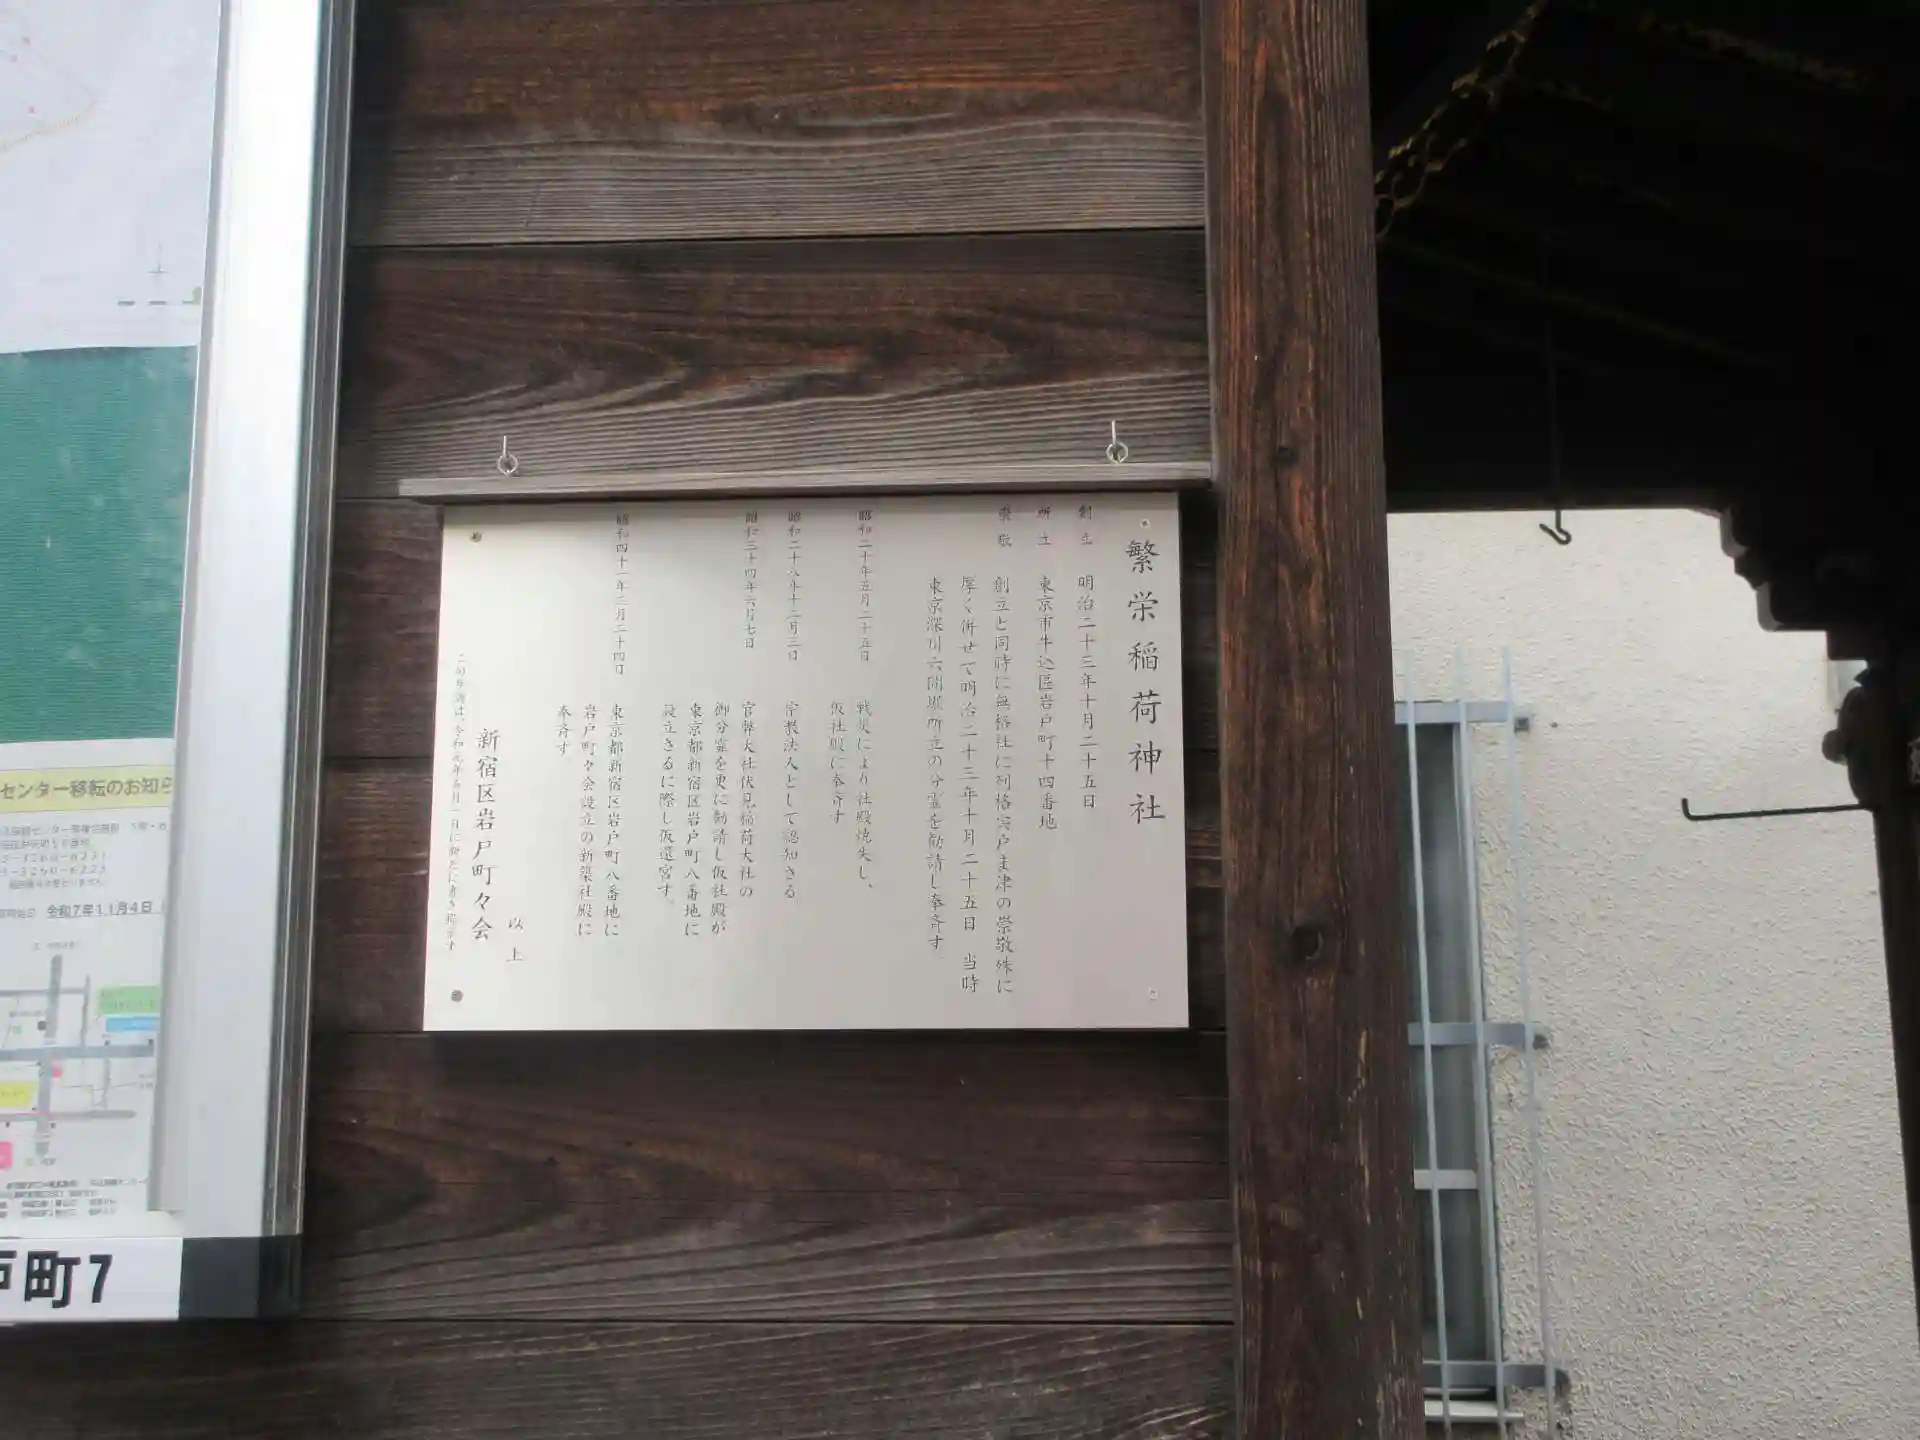 繁栄稲荷神社
創立 明治二十三年十月二十五日
所立 東京市牛込區岩戸町十四番地
崇敬 創立と同時に無格社に列格宍戸ま津の崇敬殊に
厚く併せて明治二十三年十月二十五日 当時
東京深川六間堀所立の分霊を勧請し奉斉す
昭和二十年五月二十五日 戦災により社殿焼失し、
仮社殿に奉斉す
昭和二十八年十二月三日 宗教法人として認知さる
昭和三十四年六月七日 官幣大社伏見稲荷大社の
御分霊を更に勧請し仮社殿が
東京都新宿区岩戸町八番地に
設立さるに際し仮遷宮す。
昭和四十一年三月二十四日 東京都新宿区岩戸町八番地に
岩戸町々会設立の新築社殿に
奉斉す
以上
新宿区岩戸町々会
センター移転のお知ら
令和7年11月4日
町7